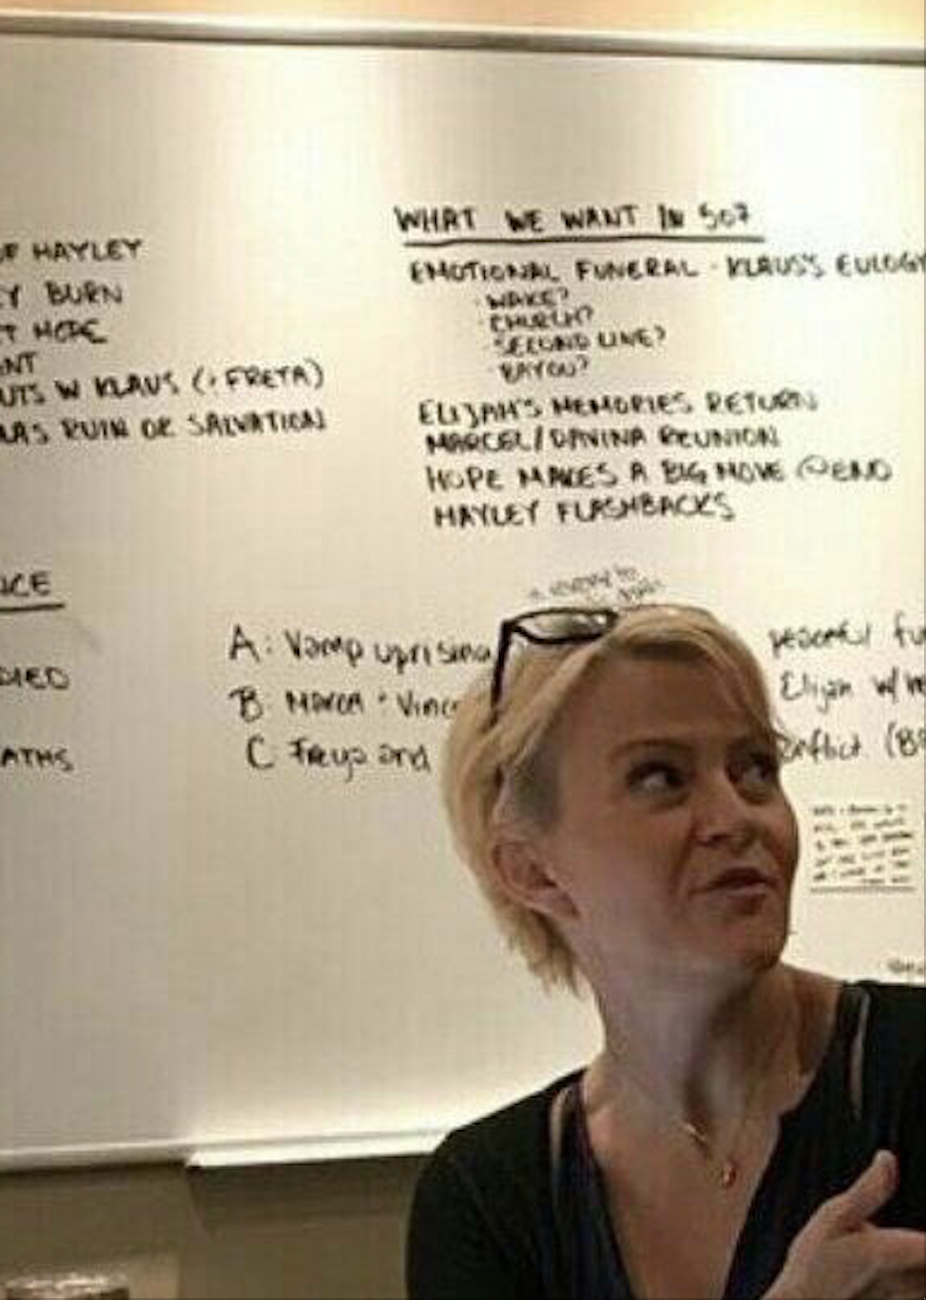 OF HAYLEY
Y BURN
T HOPE
NT
UTS W KLAUS (+ FREYA)
AS RUIN OR SALVATION
WHAT WE WANT IN 507
EMOTIONAL FUNERAL - KLAUS'S EULOGY
· WAKE?
· CHURCH?
· SECOND LINE?
· BAYOU?
ELIJAH'S MEMORIES RETURN
MARCEL/DAVINA REUNION
HOPE MAKES A BIG MOVE @ END
HAYLEY FLASHBACKS
NCE
DIED
ATHS
A: Vamp uprising peaceful fu
B: Marcel + Vince Elijah w/
C Freya and conflict